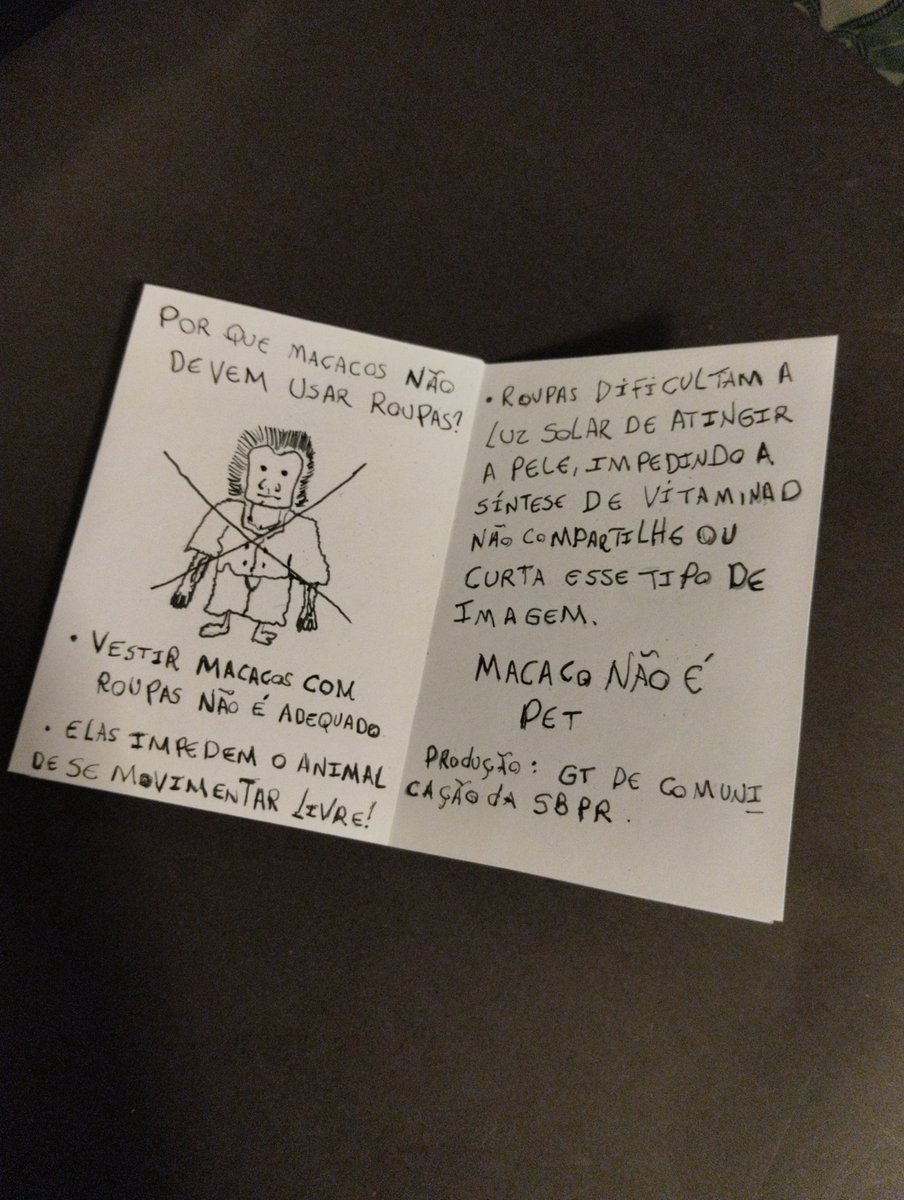 POR QUE MACACOS NÃO
DEVEM USAR ROUPAS?
• VESTIR MACACOS COM
ROUPAS NÃO É ADEQUADO
• ELAS IMPEDEM O ANIMAL
DE SE MOVIMENTAR LIVRE!
• ROUPAS DIFICULTAM A
LUZ SOLAR DE ATINGIR
A PELE, IMPEDINDO A
SÍNTESE DE VITAMINA D
NÃO COMPARTILHE OU
CURTA ESSE TIPO DE
IMAGEM.
MACACO NÃO É
PET
PRODUÇÃO: GT DE COMUNI
CAÇÃO da SBPR.